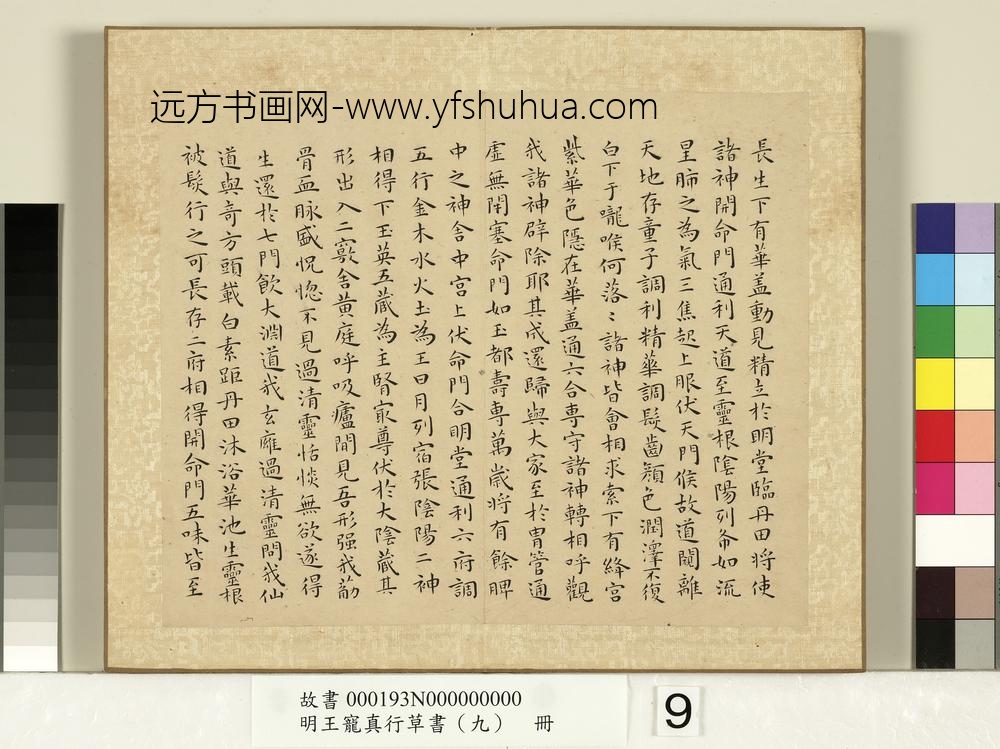 远方书画网-www.yfshuhua.com
長生下有華盖動見精立於明堂臨丹田將使
諸神開命門通利天道至靈根陰陽列布如流
星肺之為氣三焦起上服伏天門候故道闚離
天地存童子調利精華調髮齒顏色潤澤不復
白下于嚨喉何落〻諸神皆會相求索下有絳宮
紫華色隱在華盖通六合専守諸神轉相呼觀
我諸神辟除耶其成還歸與大家至於胃管通
虛無閉塞命門如玉都壽専萬歲將有餘脾
中之神舍中宮上伏命門合明堂通利六府調
五行金木水火土為王日月列宿張陰陽二神
相得下玉英五藏為主腎冣尊伏於大陰藏其
形出入二竅舍黄庭呼吸廬間見吾形强我筋
骨血脉盛怳惚不見過清靈恬惔無欲遂得
生還於七門飲大淵道我玄廱過清靈問我仙
道與奇方頭載白素距丹田沐浴華池生靈根
被髮行之可長存二府相得開命門五味皆至
故書 000193N000000000
明王寵真行草書（九） 冊
9